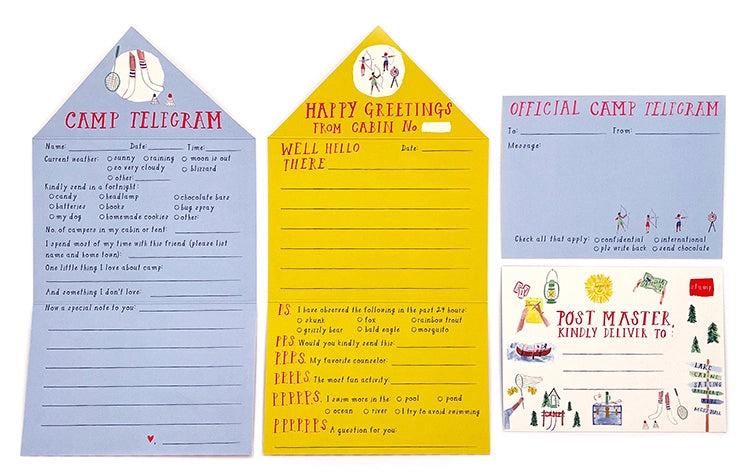 CAMP TELEGRAM
Name: Date: Time:
Current weather: sunny raining moon is out
so very cloudy blizzard
other:
Kindly send in a fortnight:
candy headlamp chocolate bars
batteries books bug spray
my dog homemade cookies other:
No. of campers in my cabin or tent:
I spend most of my time with this friend (please list
name and home town):
One little thing I love about camp:
And something I don't love:
Now a special note to you:
HAPPY GREETINGS
FROM CABIN No.
WELL HELLO Date:
THERE
P.S. I have observed the following in the past 24 hours:
skunk fox rainbow trout
grizzly bear bald eagle mosquito
PPS Would you kindly send this:
PPPS. My favorite counselor:
PPPPS The most fun activity:
PPPPPS. I swim more in the pool pond
ocean river I try to avoid swimming
PPPPPPS A question for you:
OFFICIAL CAMP TELEGRAM
To: From:
Message:
Check all that apply: confidential international
pls write back send chocolate
stamp
POST MASTER,
KINDLY DELIVER TO:
LAKE
CABINS
SAILING
MESS HALL
CAMP